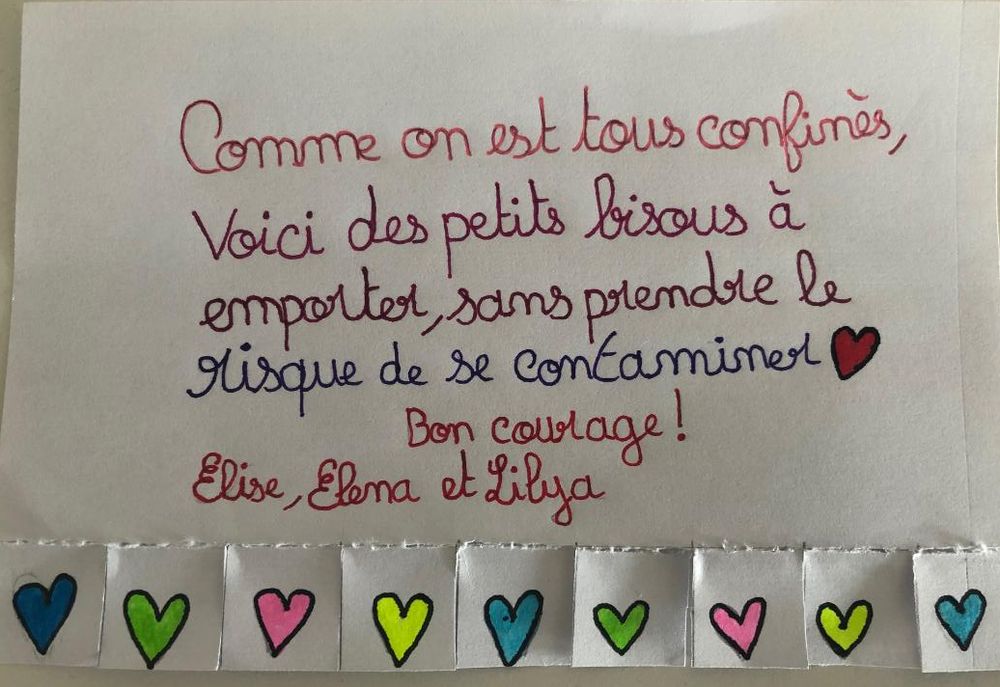 Comme on est tous confinès,
Voici des petits bisous à
emporter, sans prendre le
risque de se contaminer
Bon courage !
Elise, Elena et Lilya